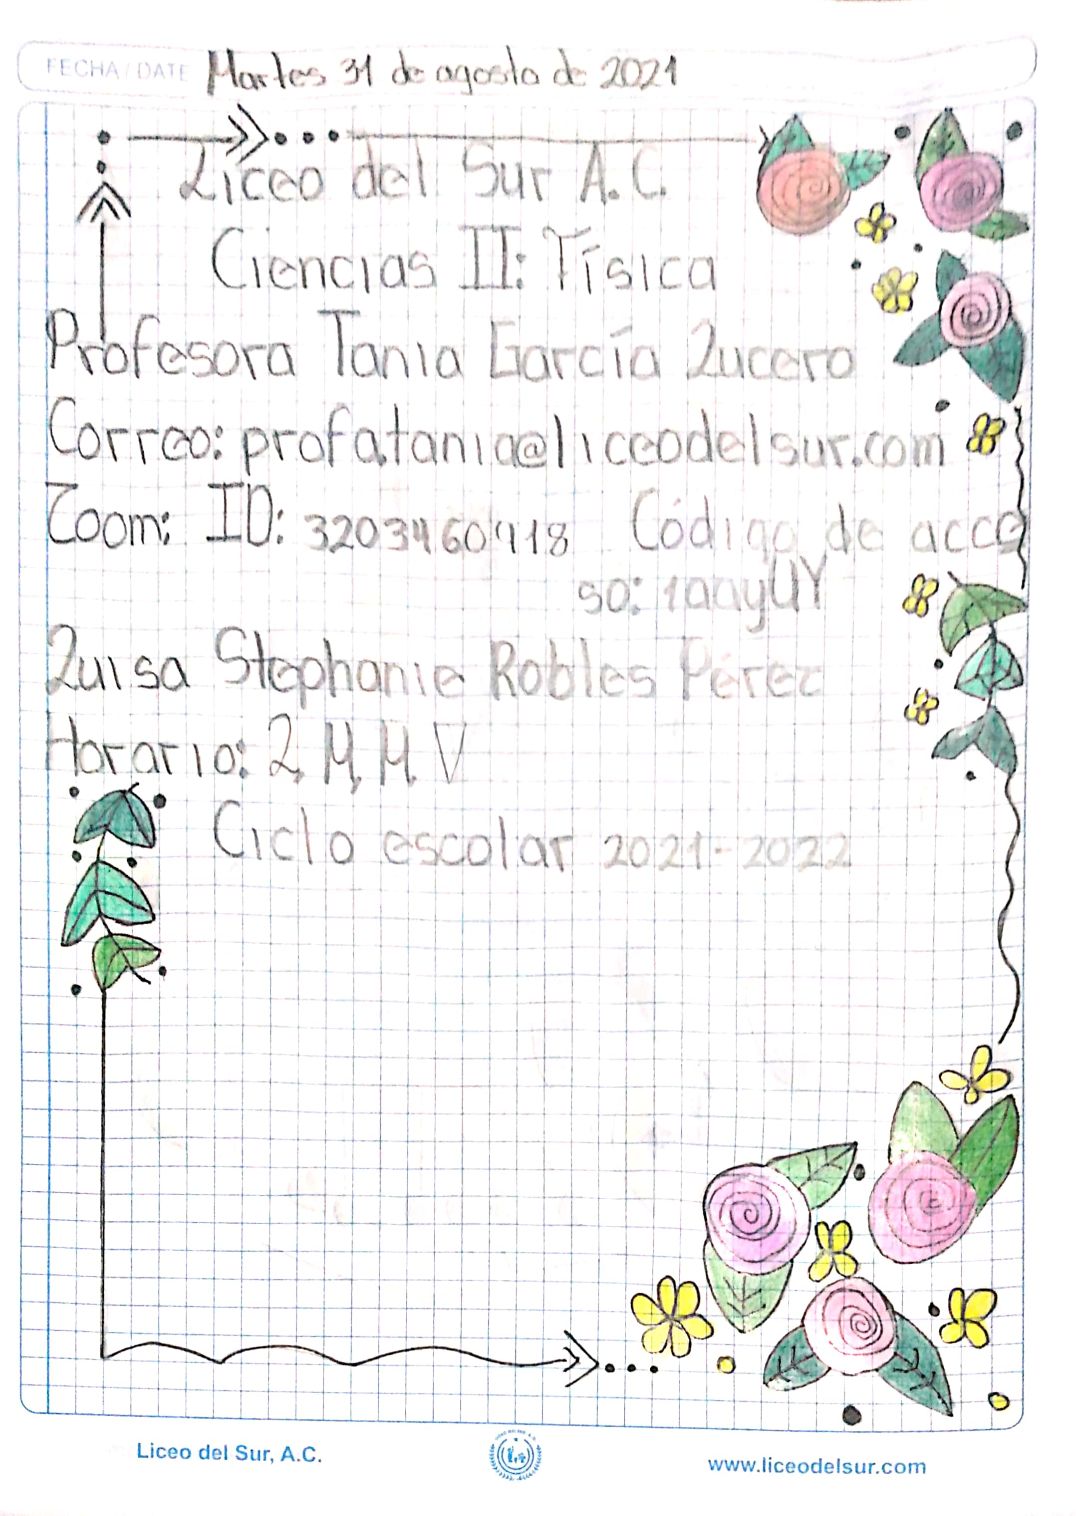 FECHA/DATE Martes 31 de agosto de 2021
Liceo del Sur A.C.
Ciencias II: Física
Profesora Tania García Lucero
Correo: profa.tania@liceodelsur.com
Zoom: ID: 3203460918 Código de acce
so: 1aayUY
Luisa Stephanie Robles Pérez
Horario: L, M, M, V
Ciclo escolar 2021-2022
Liceo del Sur, A.C.
www.liceodelsur.com